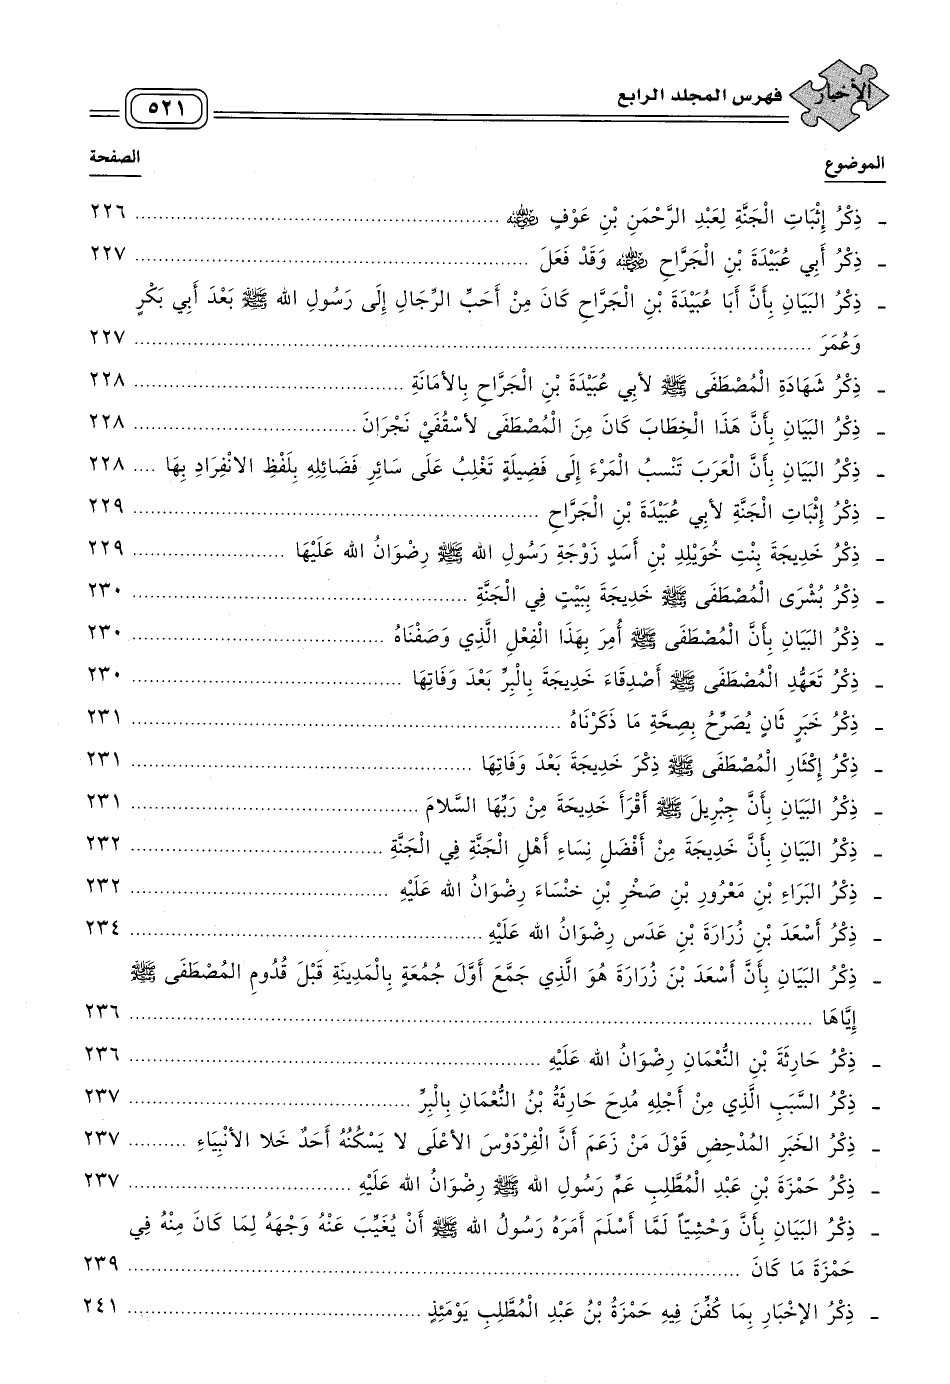 الأخبار
فهرس المجلد الرابع
٥٢١
الموضوع الصفحة
- ذِكْرُ إِثْبَاتِ الْجَنَّةِ لِعَبْدِ الرَّحْمَنِ بْنِ عَوْفٍ رضي الله عنه ........ ٢٢٦
- ذِكْرُ أَبِي عُبَيْدَةَ بْنِ الْجَرَّاحِ رضي الله عنه وَقَدْ فَعَلَ ........ ٢٢٧
- ذِكْرُ البَيَانِ بِأَنَّ أَبَا عُبَيْدَةَ بْنَ الْجَرَّاحِ كَانَ مِنْ أَحَبِّ الرِّجَالِ إِلَى رَسُولِ الله ﷺ بَعْدَ أَبِي بَكْرٍ
وَعُمَرَ ........ ٢٢٧
- ذِكْرُ شَهَادَةِ الْمُصْطَفَى ﷺ لأَبِي عُبَيْدَةَ بْنِ الْجَرَّاحِ بِالأَمَانَةِ ........ ٢٢٨
- ذِكْرُ البَيَانِ بِأَنَّ هَذَا الْخِطَابَ كَانَ مِنَ الْمُصْطَفَى لأُسْقُفَيْ نَجْرَانَ ........ ٢٢٨
- ذِكْرُ البَيَانِ بِأَنَّ الْعَرَبَ تَنْسبُ المَرْءَ إِلَى فَضِيلَةٍ تَغْلِبُ عَلَى سَائِرِ فَضَائِلِهِ بِلَفْظِ الانْفِرَادِ بِهَا .... ٢٢٨
- ذِكْرُ إِثْبَاتِ الْجَنَّةِ لأَبِي عُبَيْدَةَ بْنِ الْجَرَّاحِ ........ ٢٢٩
- ذِكْرُ خَدِيجَةَ بِنْتِ خُوَيْلِدِ بْنِ أَسَدٍ زَوْجَةِ رَسُولِ الله ﷺ رِضْوَانُ الله عَلَيْهَا ........ ٢٢٩
- ذِكْرُ بُشْرَى الْمُصْطَفَى ﷺ خَدِيجَةَ بِبَيْتٍ فِي الْجَنَّةِ ........ ٢٣٠
- ذِكْرُ البَيَانِ بِأَنَّ الْمُصْطَفَى ﷺ أُمِرَ بِهَذَا الْفِعْلِ الَّذِي وَصَفْنَاهُ ........ ٢٣٠
- ذِكْرُ تَعَهُّدِ الْمُصْطَفَى ﷺ أَصْدِقَاءَ خَدِيجَةَ بِالْبِرِّ بَعْدَ وَفَاتِهَا ........ ٢٣٠
- ذِكْرُ خَبَرٍ ثَانٍ يُصَرِّحُ بِصِحَّةِ مَا ذَكَرْنَاهُ ........ ٢٣١
- ذِكْرُ إِكْثَارِ الْمُصْطَفَى ﷺ ذِكْرَ خَدِيجَةَ بَعْدَ وَفَاتِهَا ........ ٢٣١
- ذِكْرُ البَيَانِ بِأَنَّ جِبْرِيلَ ﷺ أَقْرَأَ خَدِيجَةَ مِنْ رَبِّهَا السَّلامَ ........ ٢٣١
- ذِكْرُ البَيَانِ بِأَنَّ خَدِيجَةَ مِنْ أَفْضَلِ نِسَاءِ أَهْلِ الْجَنَّةِ فِي الْجَنَّةِ ........ ٢٣٢
- ذِكْرُ البَرَاءِ بْنِ مَعْرُورِ بْنِ صَخْرِ بْنِ خنْسَاءَ رِضْوَانُ الله عَلَيْهِ ........ ٢٣٢
- ذِكْرُ أَسْعَدَ بْنِ زُرَارَةَ بْنِ عَدَس رِضْوَانُ الله عَلَيْهِ ........ ٢٣٤
- ذِكْرُ البَيَانِ بِأَنَّ أَسْعَدَ بْنَ زُرَارَةَ هُوَ الَّذِي جَمَّعَ أَوَّلَ جُمُعَةٍ بِالْمَدِينَةِ قَبْلَ قُدُومِ المُصْطَفَى ﷺ
إِيَّاهَا ........ ٢٣٦
- ذِكْرُ حَارِثَةَ بْنِ النُّعْمَانِ رِضْوَانُ الله عَلَيْهِ ........ ٢٣٦
- ذِكْرُ السَّبَبِ الَّذِي مِنْ أَجْلِهِ مُدِحَ حَارِثَةُ بْنُ النُّعْمَانِ بِالْبِرِّ ........ ٢٣٧
- ذِكْرُ الخَبَرِ المُدْحِضِ قَوْلَ مَنْ زَعَمَ أَنَّ الْفِرْدَوْسَ الأَعْلَى لا يَسْكُنُهُ أَحَدٌ خَلا الأَنْبِيَاءِ ........ ٢٣٧
- ذِكْرُ حَمْزَةَ بْنِ عَبْدِ الْمُطَّلِبِ عَمِّ رَسُولِ الله ﷺ رِضْوَانُ الله عَلَيْهِ ........ ٢٣٧
- ذِكْرُ البَيَانِ بِأَنَّ وَحْشِيّاً لَمَّا أَسْلَمَ أَمَرَهُ رَسُولُ الله ﷺ أَنْ يُغَيِّبَ عَنْهُ وَجْهَهُ لِمَا كَانَ مِنْهُ فِي
حَمْزَةَ مَا كَانَ ........ ٢٣٩
- ذِكْرُ الإخْبَارِ بِمَا كُفِّنَ فِيهِ حَمْزَةُ بْنُ عَبْدِ الْمُطَّلِبِ يَوْمَئِذٍ ........ ٢٤١